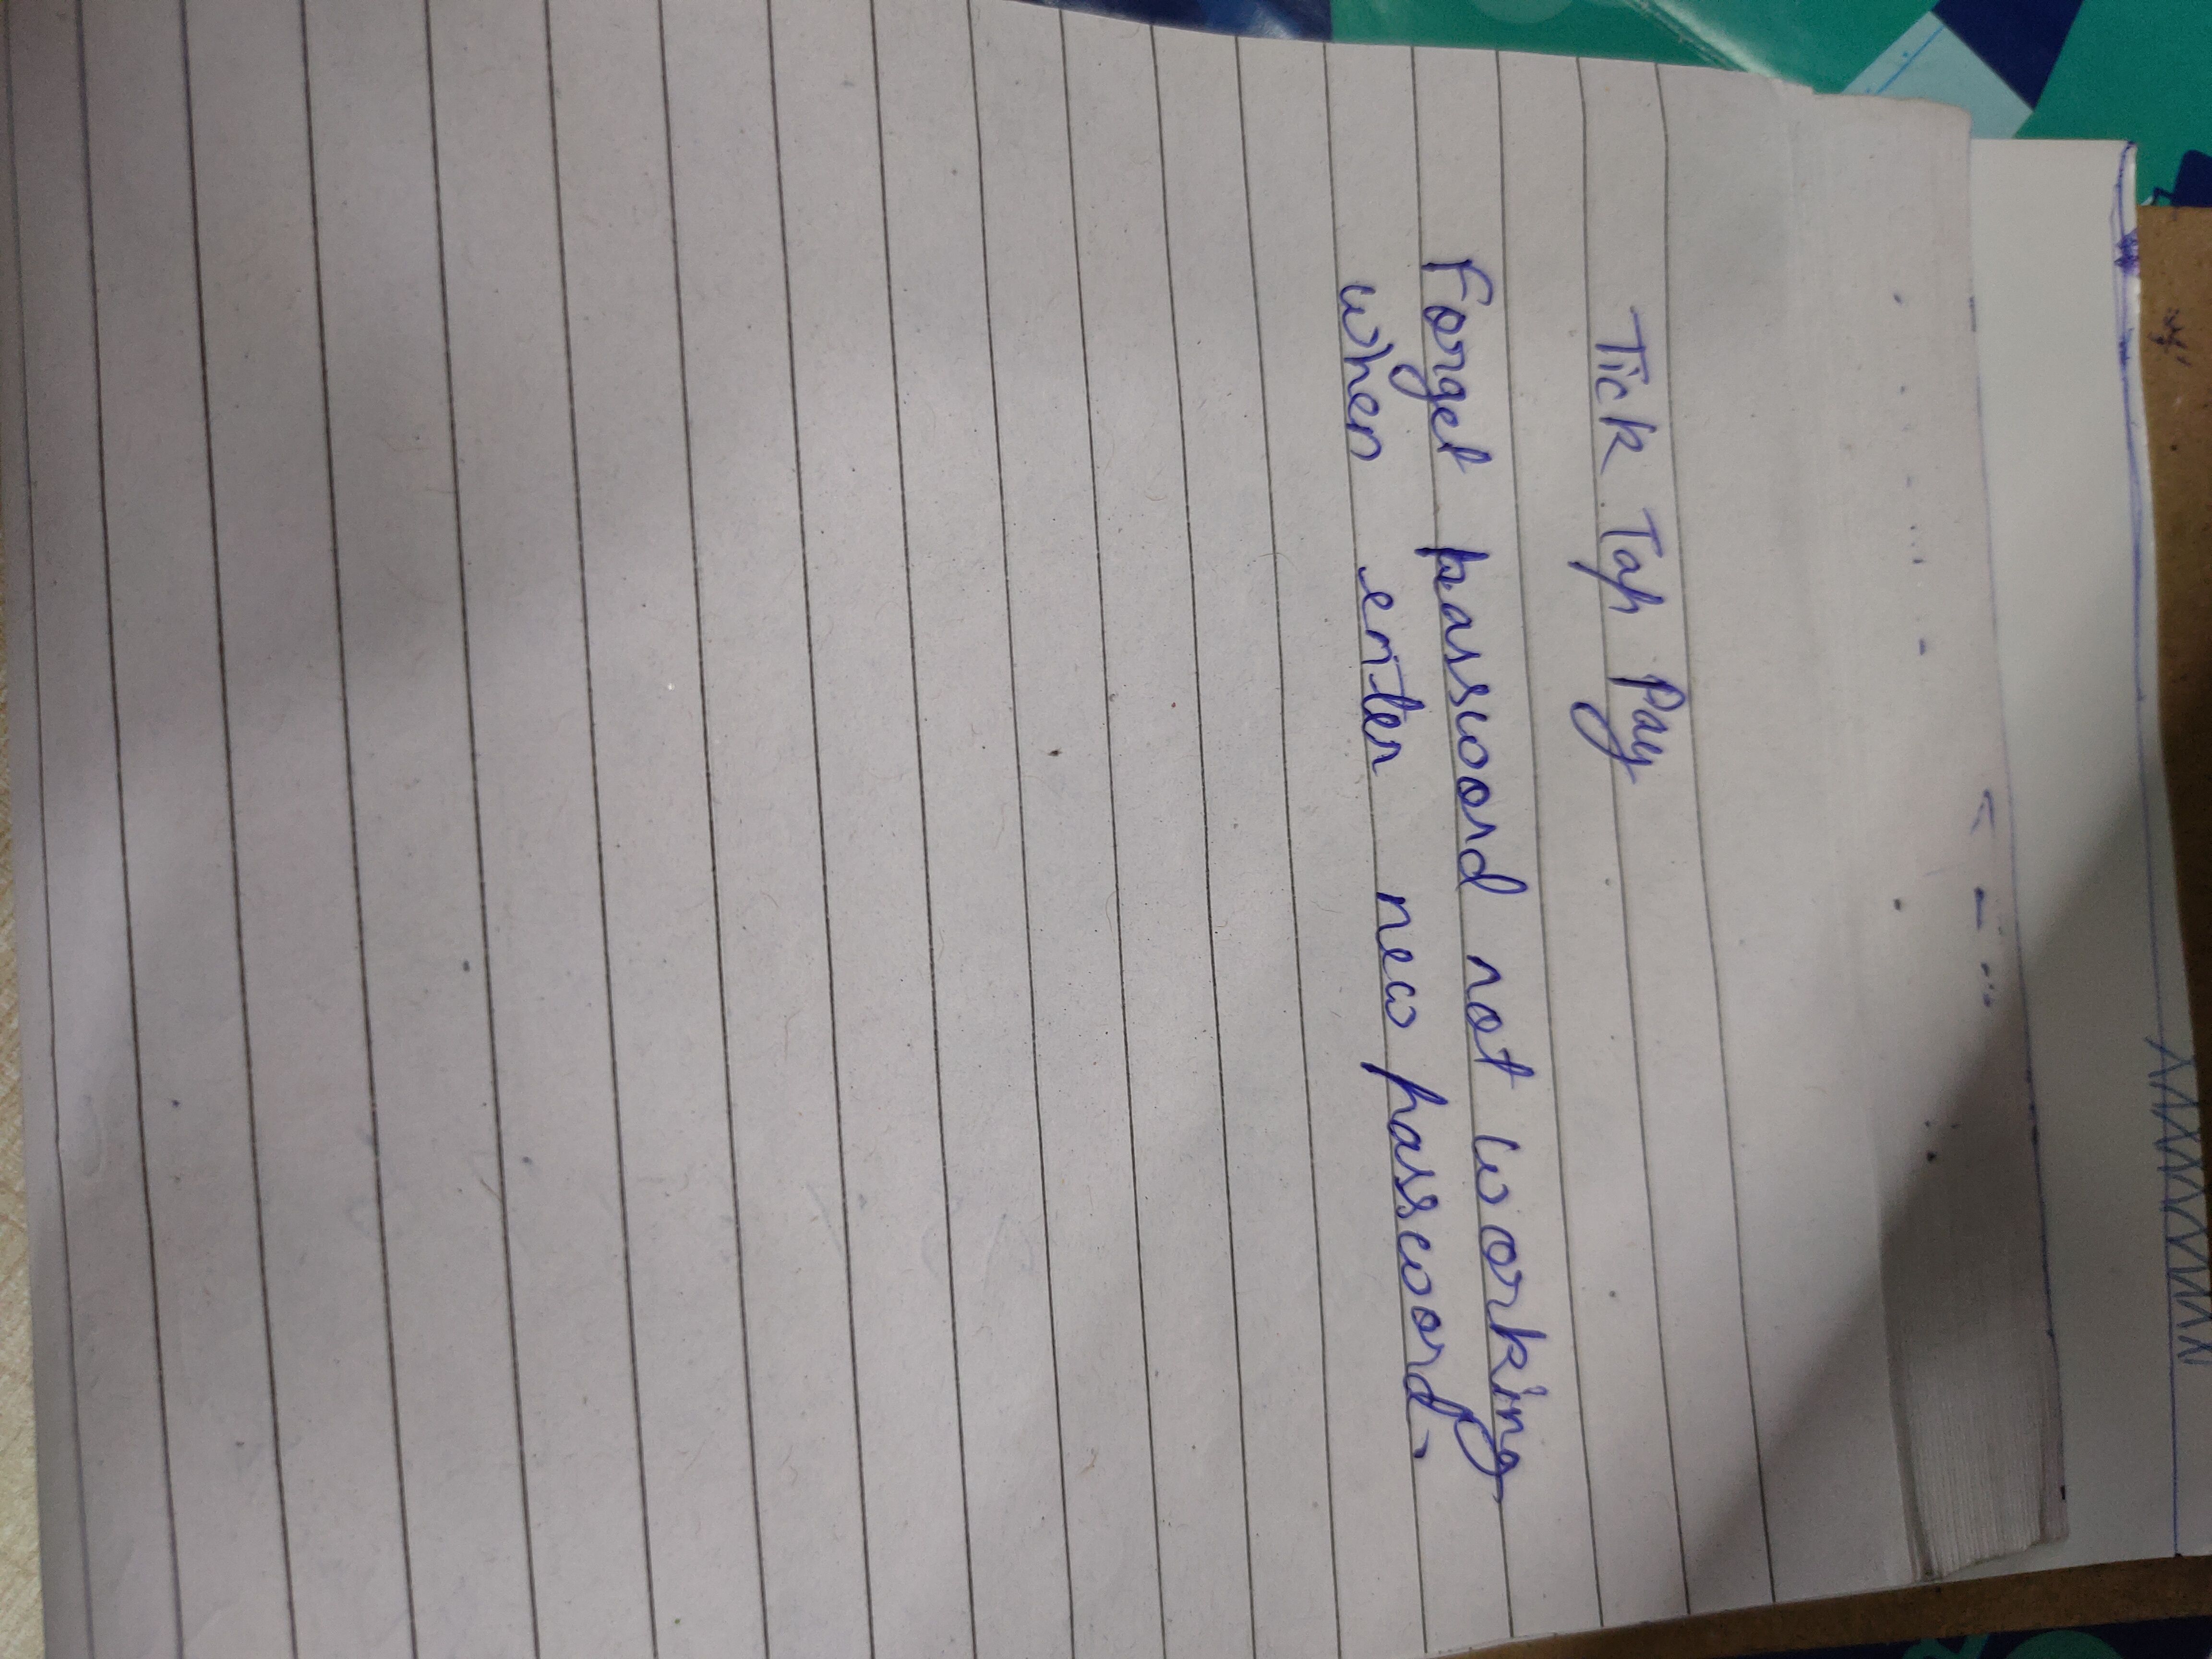 Tick Tap Pay
Forget password not working
when enter new password.